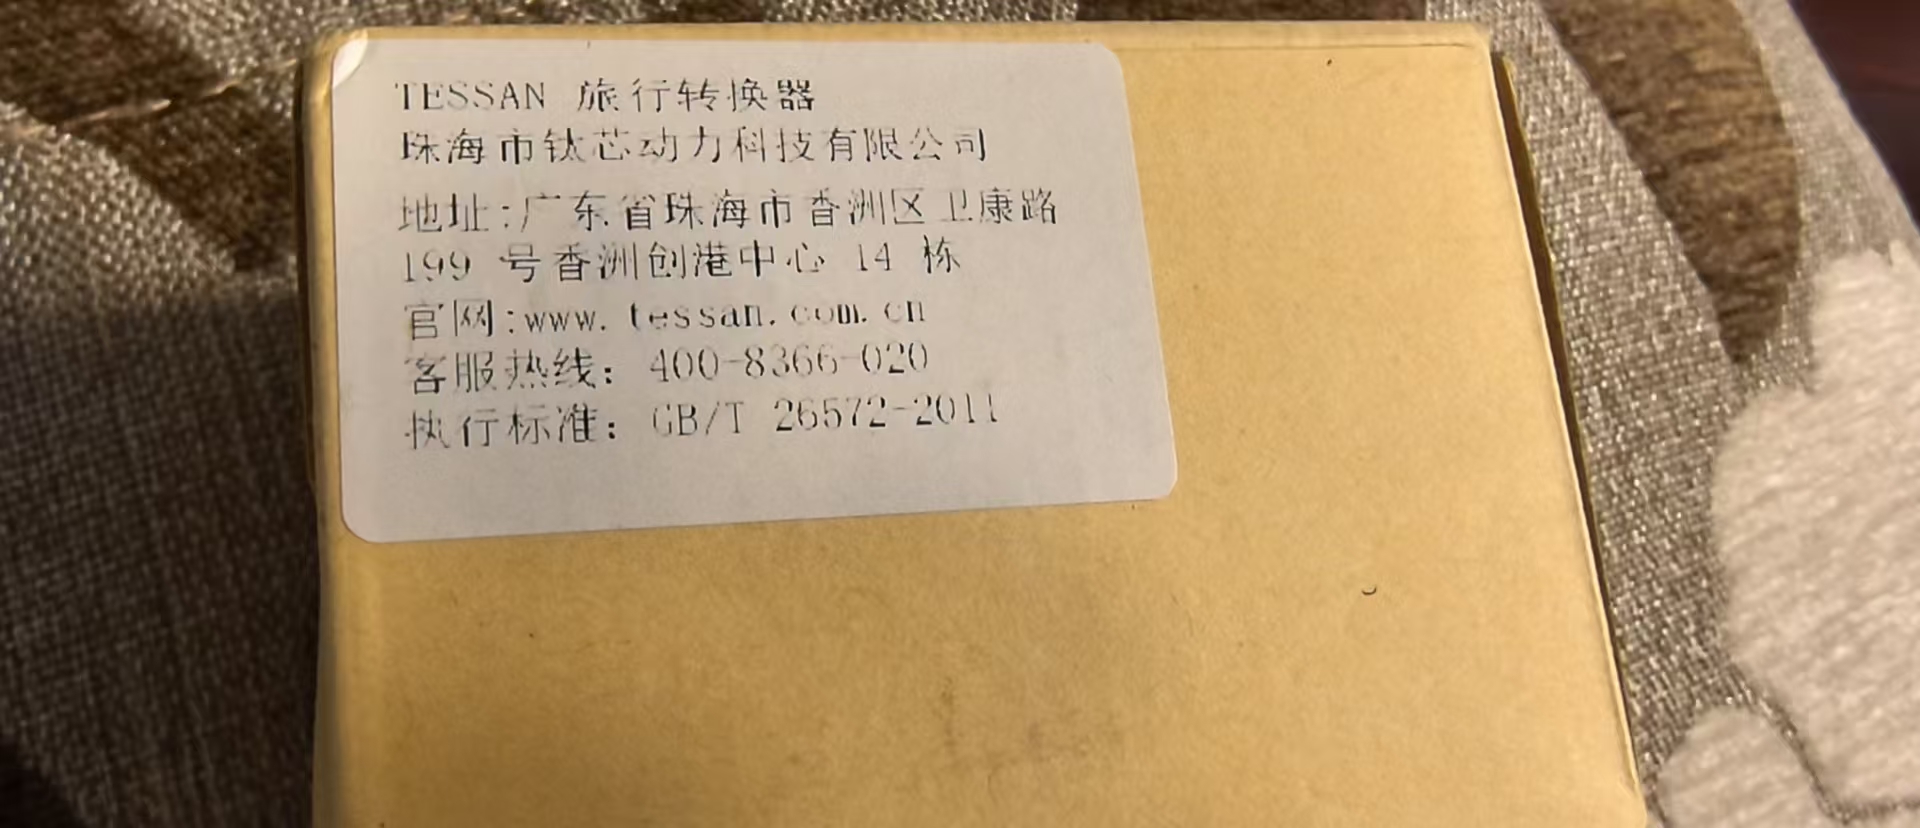 TESSAN 旅行转换器
珠海市钛芯动力科技有限公司
地址:广东省珠海市香洲区卫康路
199 号香洲创港中心 14 栋
官网:www.tessan.com.cn
客服热线: 400-8366-020
执行标准: GB/T 26572-2011